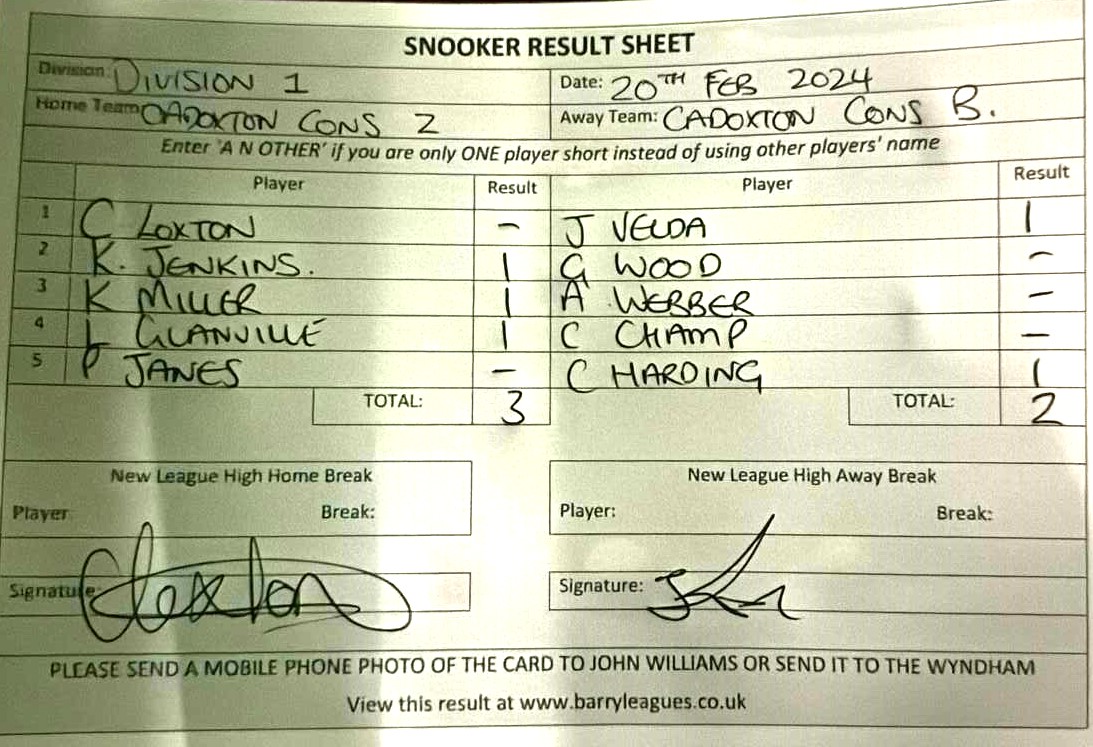 SNOOKER RESULT SHEET
Division: DIVISION 1 Date: 20TH FEB 2024
Home Team CADOXTON CONS 2 Away Team: CADOXTON CONS B.
Enter 'A N OTHER' if you are only ONE player short instead of using other players' name
Player Result Player Result
1 C LOXTON - J VELDA 1
2 K. JENKINS. 1 G WOOD -
3 K MILLER 1 A WEBBER -
4 L GLANVILLE 1 C CHAMP -
5 P JANES - C HARDING 1
TOTAL: 3 TOTAL: 2
New League High Home Break New League High Away Break
Player Break: Player: Break:
Signature CLoxton Signature:
PLEASE SEND A MOBILE PHONE PHOTO OF THE CARD TO JOHN WILLIAMS OR SEND IT TO THE WYNDHAM
View this result at www.barryleagues.co.uk